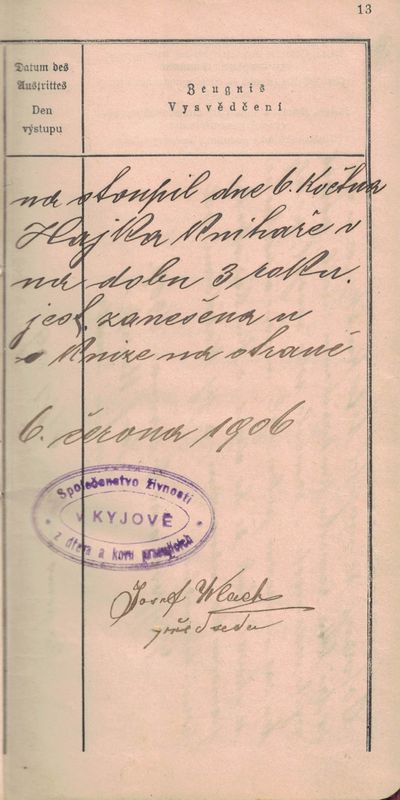 13
Datum des
Austrittes
Den
výstupu
Zeugniß
Vysvědčení
na stoupil dne 6. Května
Hajka Knihaře v
na dobu 3 roku.
jest zanešena u
Knize na straně
6. června 1906
Společenstvo živností
V KYJOVĚ
z dřeva a kovu
Josef Vlach
předseda